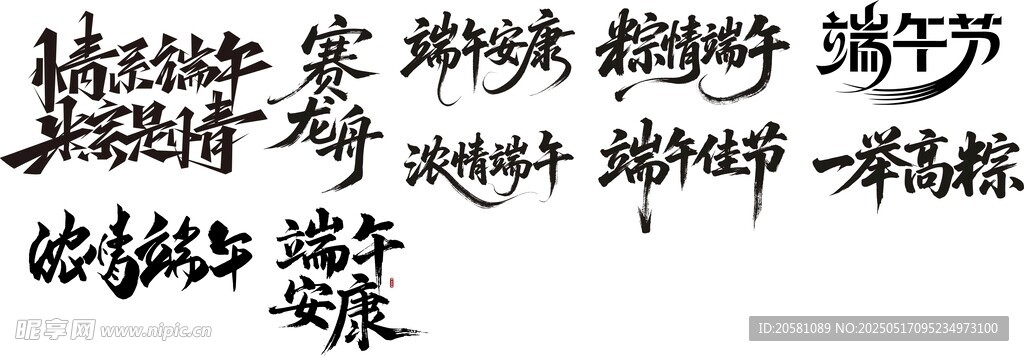 情系端午
米宗是情
赛
龙舟
端午安康
粽情端午
端午节
浓情端午
端午佳节
一举高粽
浓情端午
端午
安康
昵享网 www.nipic.cn
ID:20581089 NO:20250517095234973100